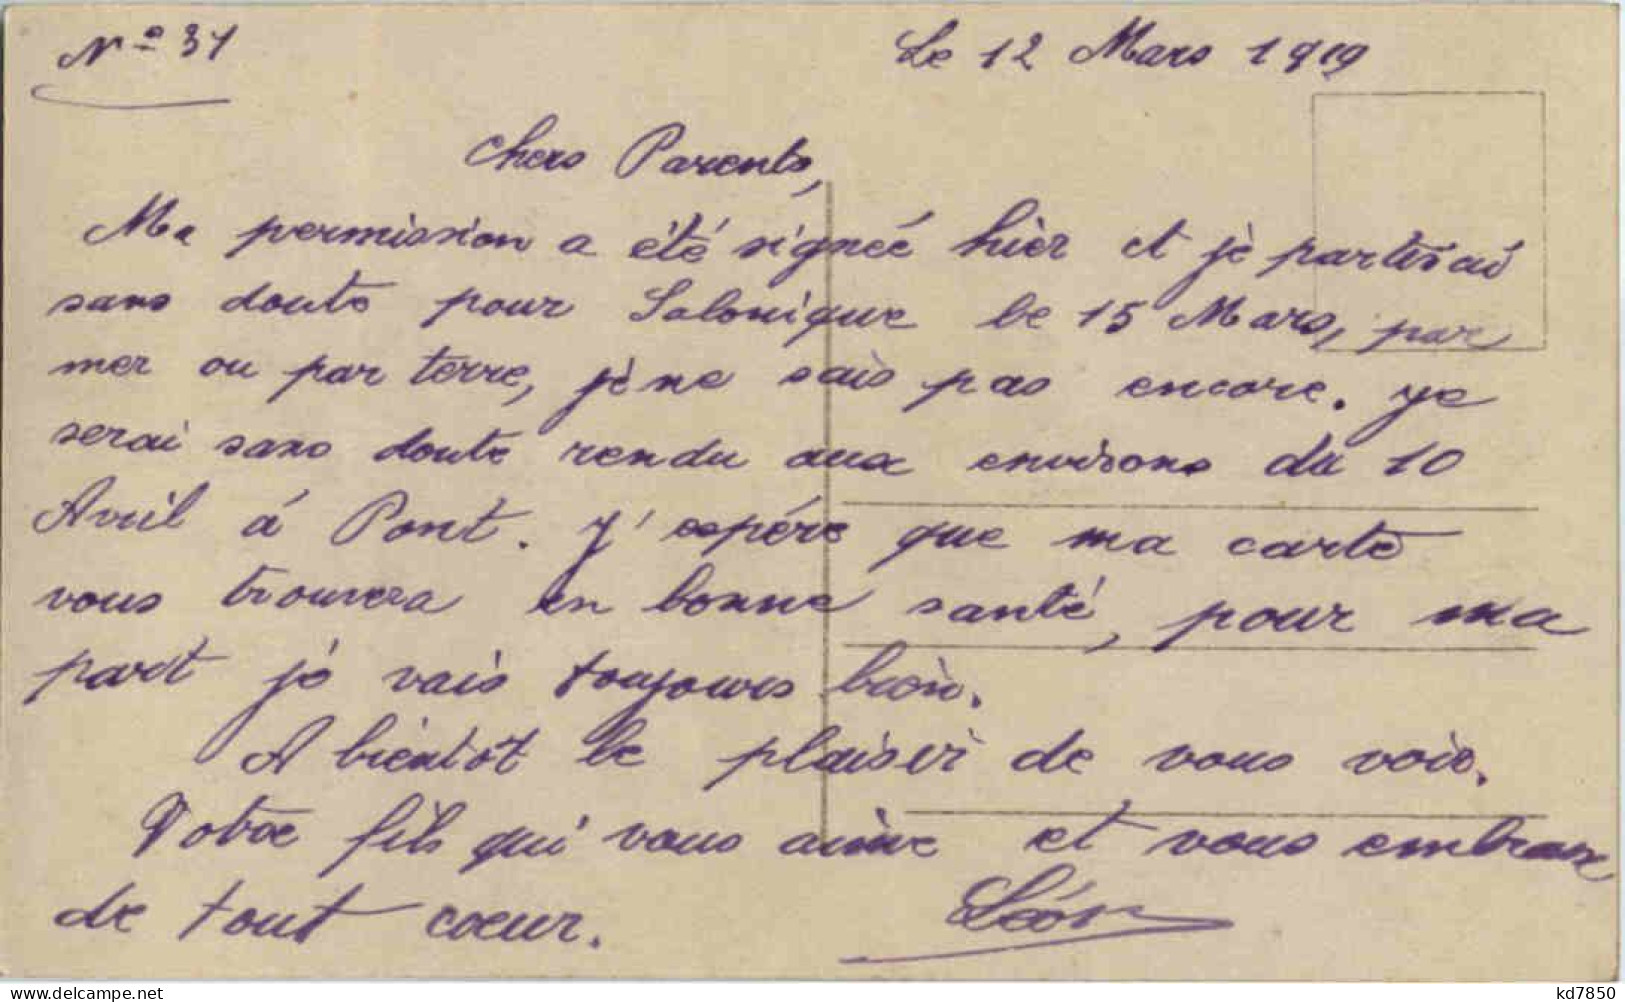 N° 31
Le 12 Mars 1919
Chers Parents,
Ma permission a été signeé hier et je partirai
sans doute pour Salonique le 15 Mars, par
mer ou par terre, je ne sais pas encore. Je
serai sans doute rendu aux environs du 10
Avril á Pont. J'espére que ma carte
vous trouvera en bonne santé, pour ma
part je vais toujours bien.
A bientôt le plaisir de vous voir.
Votre fils qui vous aime et vous embrasse
de tout cœur. Léon
kd7850